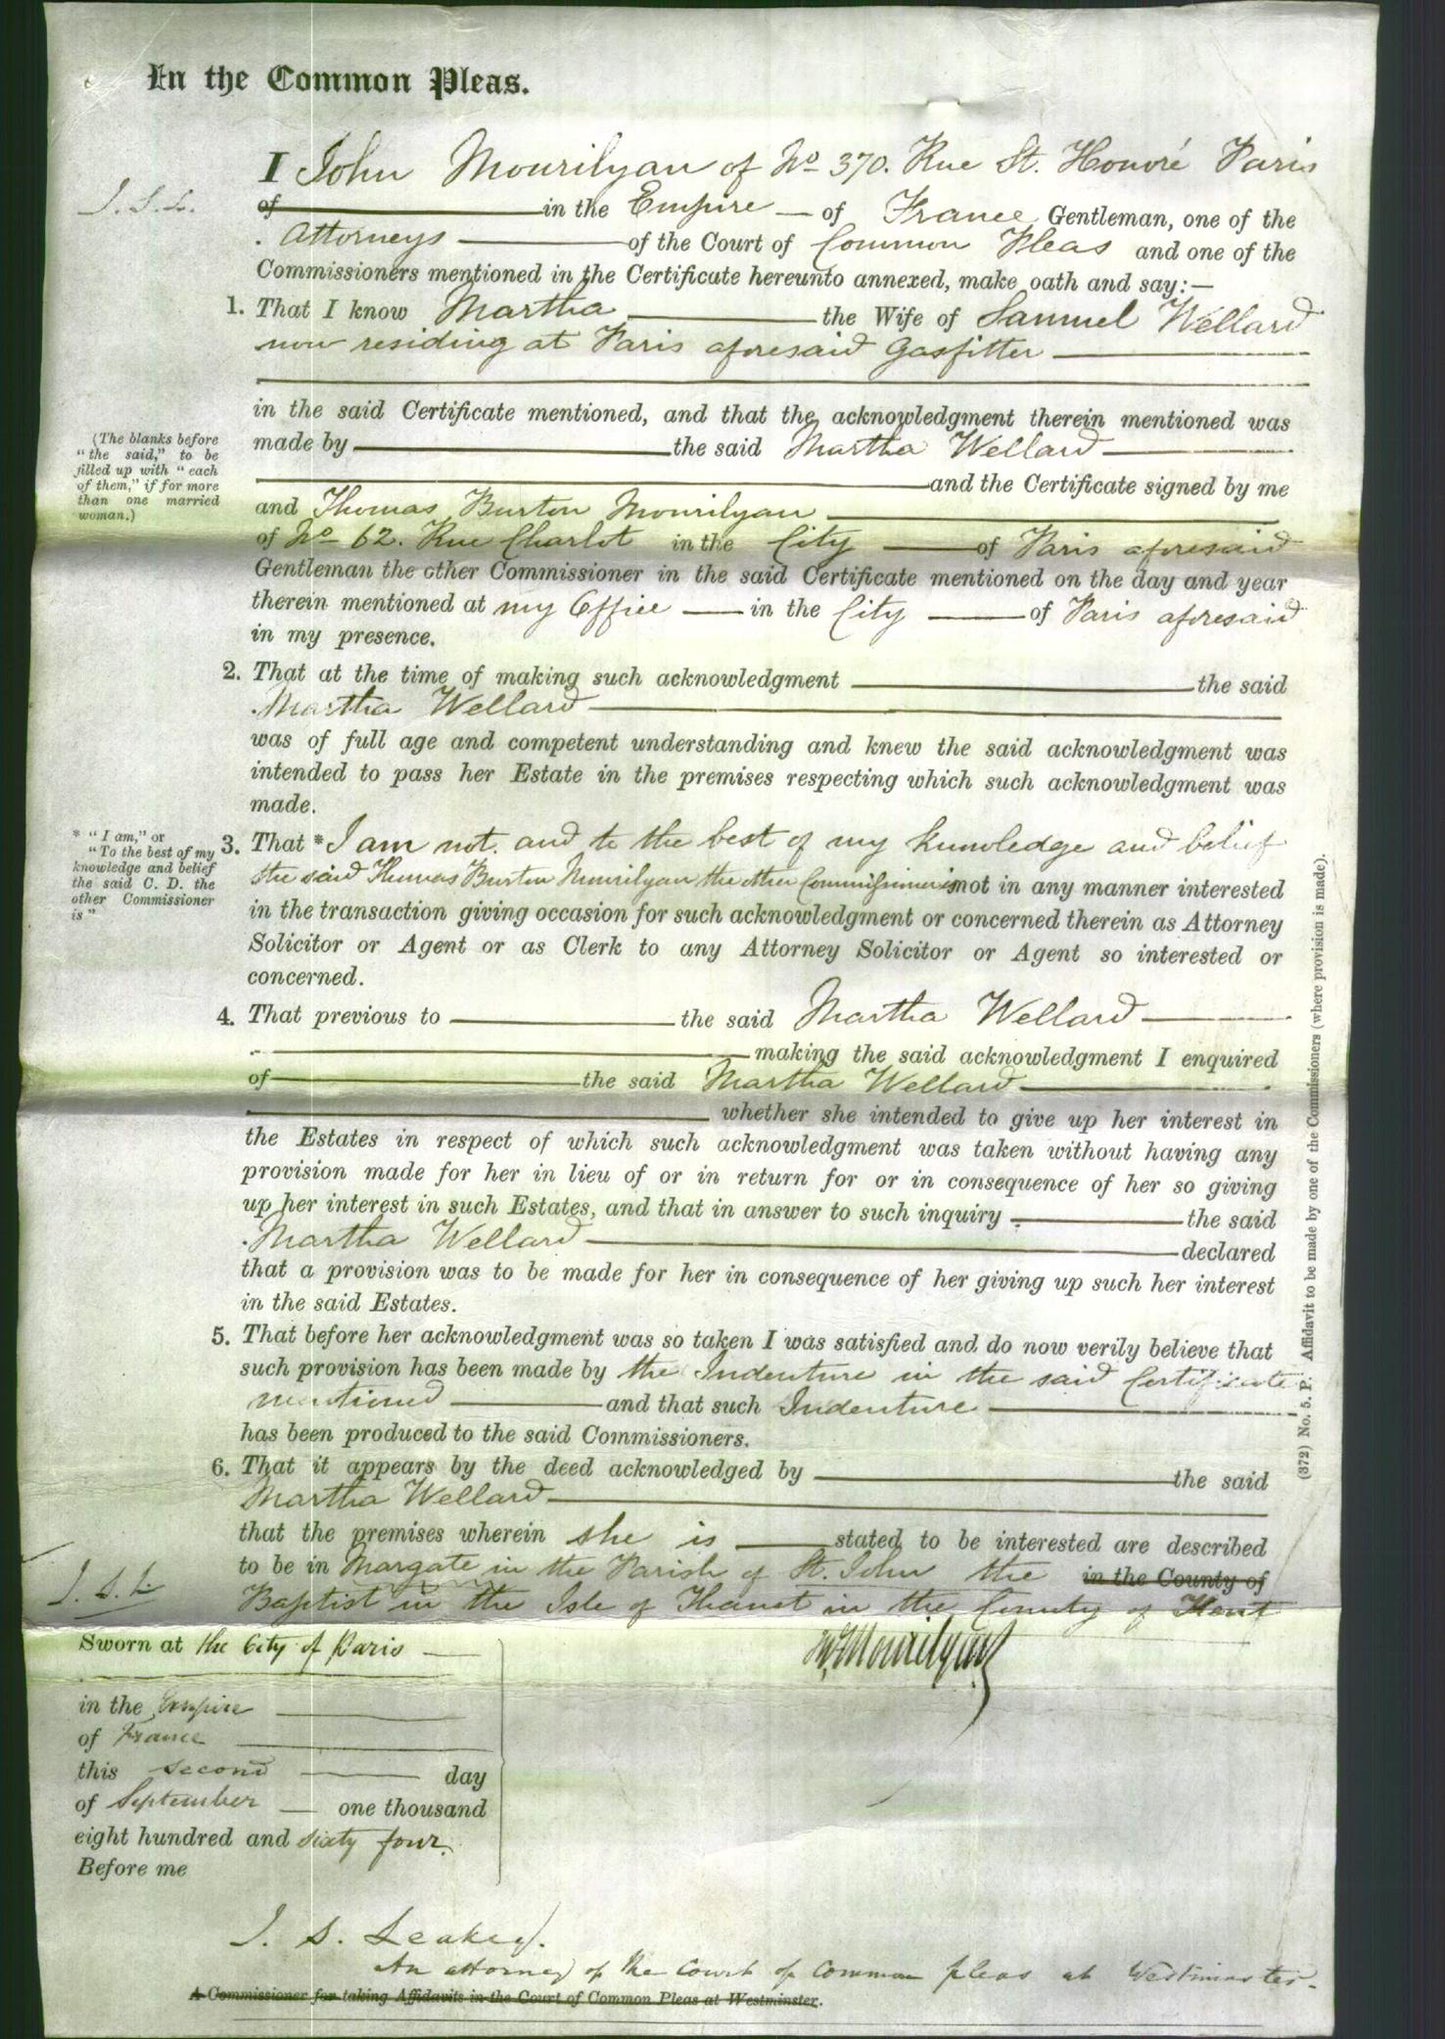 In the Common Pleas.
I John Mourilyan of No 370. Rue St. Honoré Paris
J. S. L.
of in the Empire of France Gentleman, one of the
Attorneys of the Court of Common Pleas and one of the
Commissioners mentioned in the Certificate hereunto annexed, make oath and say:—
1. That I know Martha the Wife of Samuel Wellard
now residing at Paris aforesaid Gasfitter
in the said Certificate mentioned, and that the acknowledgment therein mentioned was
made by the said Martha Wellard
(The blanks before
"the said," to be
filled up with "each
of them," if for more
than one married
woman.)
and the Certificate signed by me
and Thomas Burton Mourilyan
of No 62. Rue Charlot in the City of Paris aforesaid
Gentleman the other Commissioner in the said Certificate mentioned on the day and year
therein mentioned at my Office in the City of Paris aforesaid
in my presence.
2. That at the time of making such acknowledgment the said
Martha Wellard
was of full age and competent understanding and knew the said acknowledgment was
intended to pass her Estate in the premises respecting which such acknowledgment was
made.
* "I am," or
"To the best of my
knowledge and belief
the said C. D. the
other Commissioner
is"
3. That * I am not and to the best of my knowledge and belief
the said Thomas Burton Mourilyan the other Commissioner is not in any manner interested
in the transaction giving occasion for such acknowledgment or concerned therein as Attorney
Solicitor or Agent or as Clerk to any Attorney Solicitor or Agent so interested or
concerned.
4. That previous to the said Martha Wellard
making the said acknowledgment I enquired
of the said Martha Wellard
whether she intended to give up her interest in
the Estates in respect of which such acknowledgment was taken without having any
provision made for her in lieu of or in return for or in consequence of her so giving
up her interest in such Estates, and that in answer to such inquiry the said
Martha Wellard declared
that a provision was to be made for her in consequence of her giving up such her interest
in the said Estates.
5. That before her acknowledgment was so taken I was satisfied and do now verily believe that
such provision has been made by the Indenture in the said Certificate
mentioned and that such Indenture
has been produced to the said Commissioners.
6. That it appears by the deed acknowledged by the said
Martha Wellard
that the premises wherein she is stated to be interested are described
to be in Margate in the Parish of St. John the in the County of
J. S. L
Baptist in the Isle of Thanet in the County of Kent
(372) No. 5. P. Affidavit to be made by one of the Commissioners (where provision is made).
Jno Mourilyan
Sworn at the City of Paris
in the Empire
of France
this second day
of September one thousand
eight hundred and sixty four.
Before me
J. S. Leakey.
An attorney of the Court of Common pleas at Westminster.
A Commissioner for taking Affidavits in the Court of Common Pleas at Westminster.